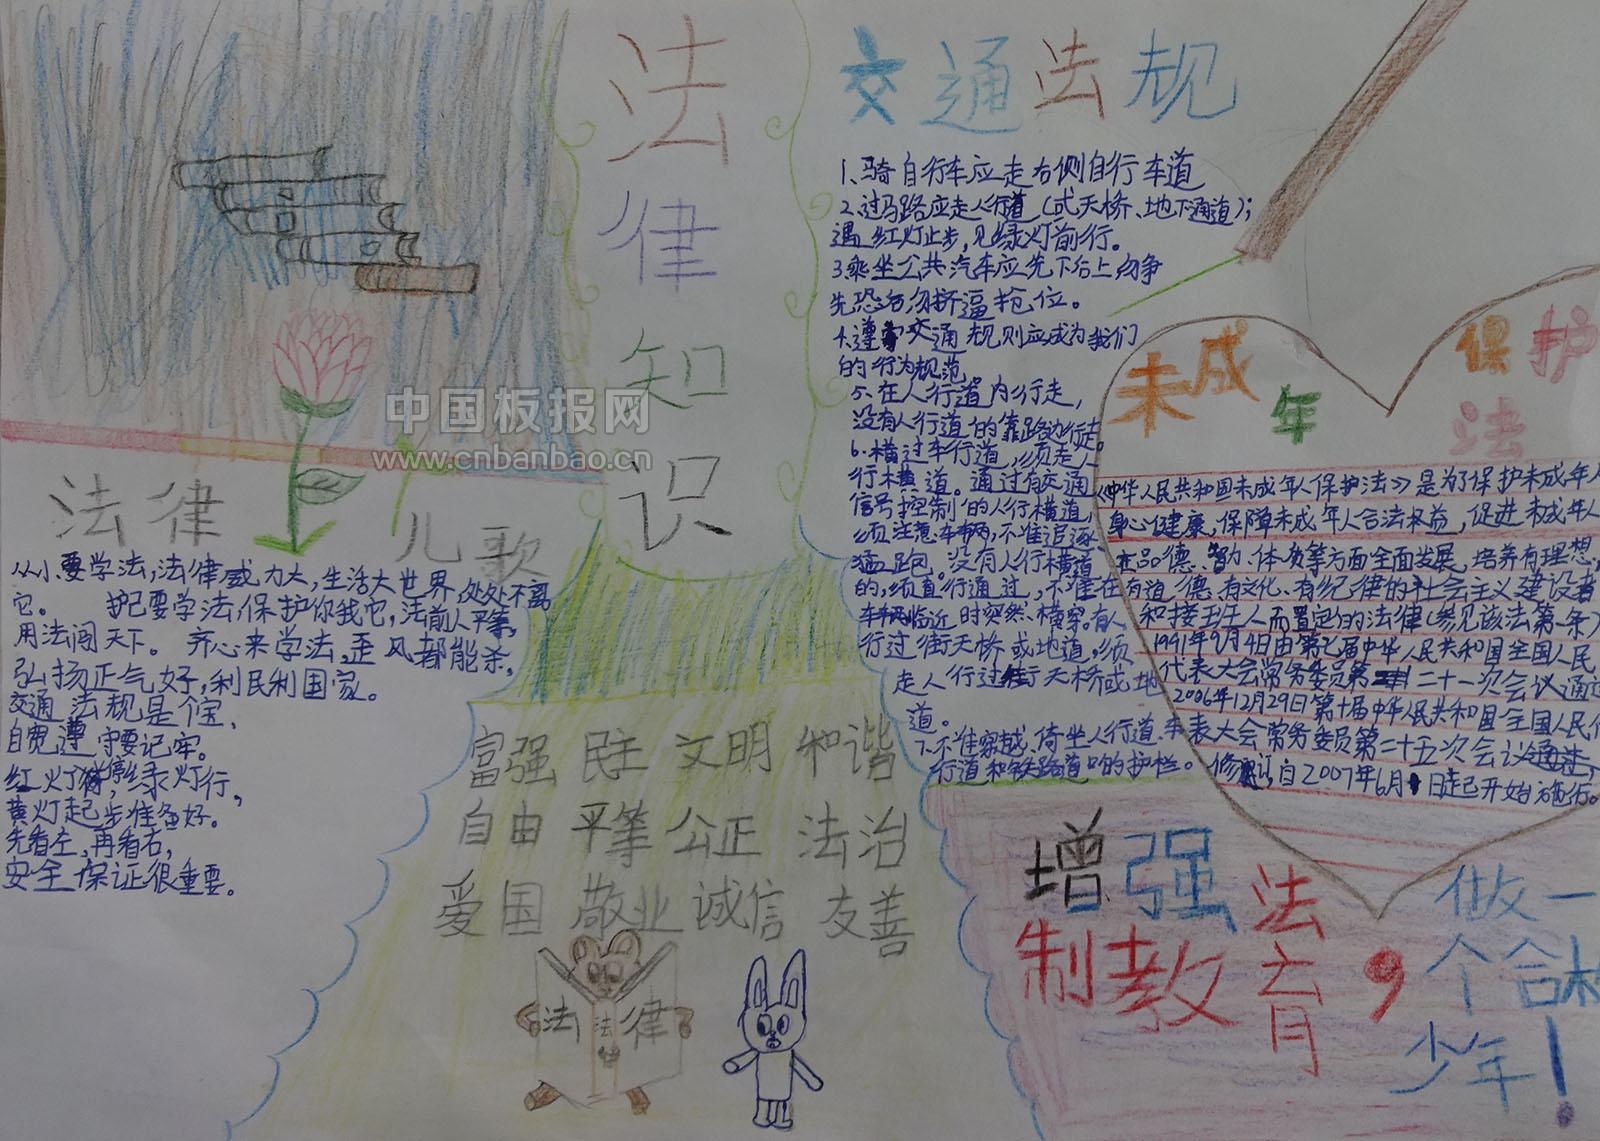 法律知识
中国板报网
www.cnbanbao.cn
法律儿歌
从小要学法,法律威力大,生活大世界,处处不离
它。 护己要学法,保护你我它,法前人平等,
用法闯天下。 齐心来学法,歪风都能杀,
弘扬正气好,利民利国家。
交通法规是个宝,
自觉遵守要记牢。
红灯停,绿灯行,
黄灯起步准备好。
先看左,再看右,
安全保证很重要。
富强 民主 文明 和谐
自由 平等 公正 法治
爱国 敬业 诚信 友善
法 法律 律
交通法规
1、骑自行车应走右侧自行车道
2、过马路应走人行道(或天桥、地下通道);
遇红灯止步,见绿灯前行。
3、乘坐公共汽车应先下后上勿争
先恐后勿挤逼抢位。
4、遵守交通规则应成为我们
的行为规范
5、在人行道内行走,
没有人行道的靠路边行走。
6、横过车行道,须走人
行横道。通过有交通
信号控制的人行横道,
须注意车辆,不准追逐、
猛跑。没有人行横道
的,须直行通过,不准在
车辆临近时突然横穿。有人
行过街天桥或地道,须
走人行过街天桥或地
道。
7、不准穿越、倚坐人行道、车
行道和铁路道口的护栏。
未成年保护法
《中华人民共和国未成年人保护法》是为了保护未成年人
身心健康,保障未成年人合法权益,促进未成年人
在品德、智力、体质等方面全面发展,培养有理想,
有道德、有文化、有纪律的社会主义建设者
和接班人而置定的法律(参见该法第一条)
1991年9月4日由第七届中华人民共和国全国人民
代表大会常务委员第二十一次会议通过
2006年12月29日第十届中华人民共和国全国人民代
表大会常务委员第二十五次会议通过,
修订自2007年6月1日起开始施行。
增强法
制教育,
做一
个合格
少年!